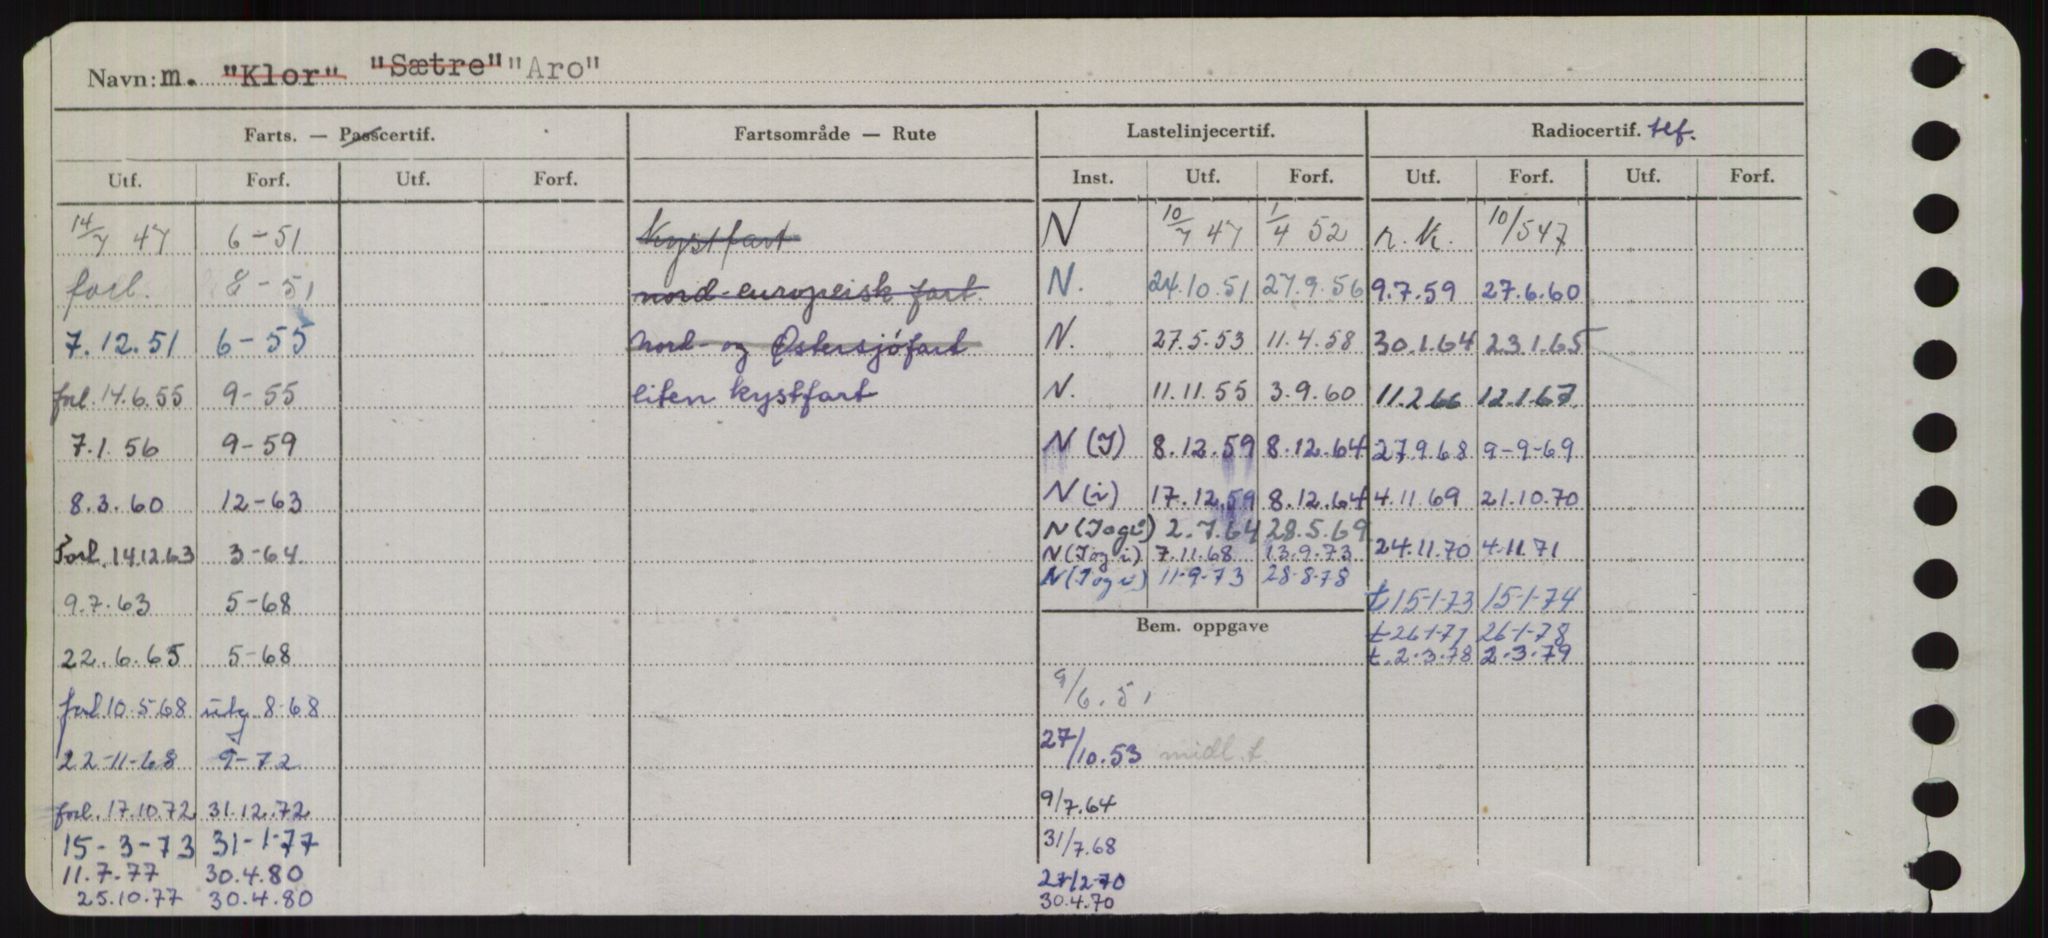 Navn: m. "Klor" "Sætre" "Aro"
Farts. — Passcertif. Fartsområde — Rute Lastelinjecertif. Radiocertif. tlf.
Utf. Forf. Utf. Forf. Inst. Utf. Forf. Utf. Forf. Utf. Forf.
14/7 47 6-51 Kystfart N 10/7 47 1/4 52 r.k. 10/547
forl. 8-51 nord-europeisk fart. N. 24.10.51 27.9.56 9.7.59 27.6.60
7.12.51 6-55 Nord- og Østersjøfart N. 27.5.53 11.4.58 30.1.64 23.1.65
forl. 14.6.55 9-55 liten kystfart N. 11.11.55 3.9.60 11.2.66 12.1.67.
7.1.56 9-59 N (I) 8.12.59 8.12.64 27.9.68 9-9-69
8.3.60 12-63 N (i) 17.12.59 8.12.64 4.11.69 21.10.70
N (I og i) 2.7.64 28.5.69
Forl. 14.12.63 3-64. N (I og i) 7.11.68 13.9.73 24.11.70 4.11.71
N (I og i) 11-9-73 28-8-78
9.7.63 5-68 t 15-1-73 15-1-74
Bem. oppgave t 26-1-77 26-1-78
22.6.65 5-68 t. 2.3.78 2.3.79
9/6.51
forl 10.5.68 utg 8-68
27/10.53 midl. t.
22-11-68 9-72
forl. 17.10.72 31.12.72 9/7.64
15-3-73 31-1-77 31/7.68
11.7.77 30.4.80 27/2-70
25.10.77 30.4.80 30.4.70